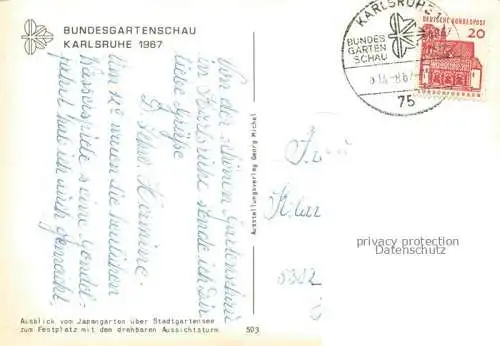 BUNDESGARTENSCHAU
KARLSRUHE 1967
Von der schönen Gartenschau
in Karlsruhe sende ich Dir
liebe Grüße
D. Schw. Hermine.
Um 12° waren die herrlichen
Wasserspiele & eine Gondel-
fahrt hab ich auch gemacht.
Ausstellungsverlag Georg Michel
KARLSRUHE 1
BUNDES
GARTEN
SCHAU
75
DEUTSCHE BUNDESPOST
20
LORSCH/HESSEN
privacy protection
Datenschutz
Ausblick vom Japangarten über Stadtgartensee
zum Festplatz mit dem drehbaren Aussichtsturm
503